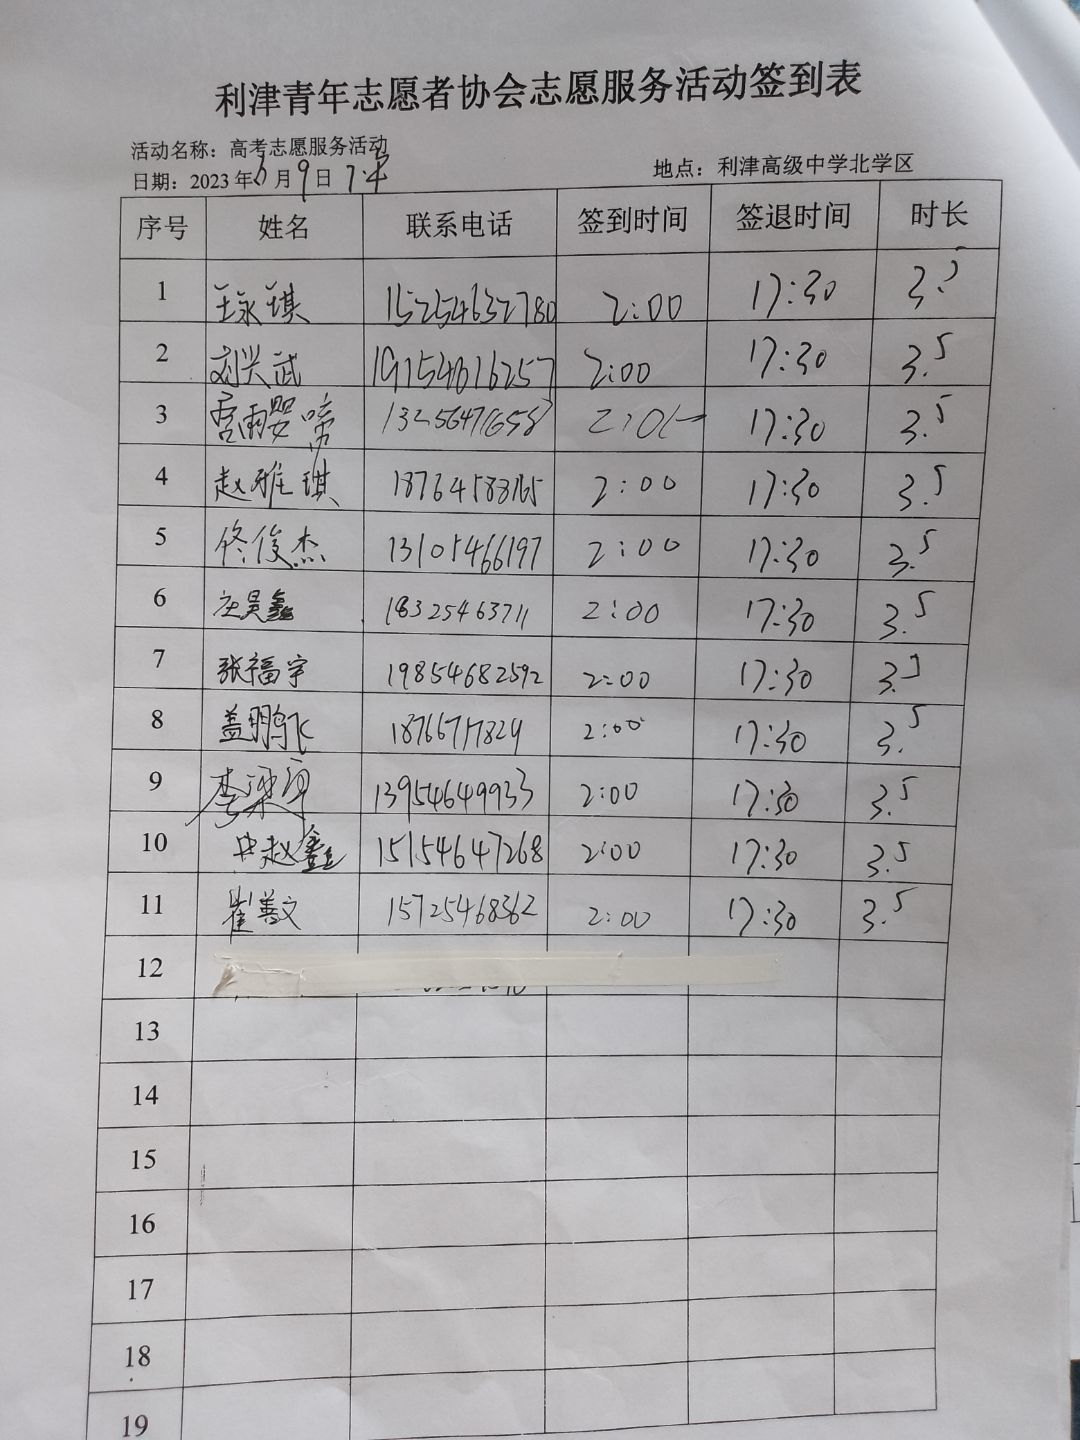 利津青年志愿者协会志愿服务活动签到表
活动名称：高考志愿服务活动
日期：2023年6月9日 下午 地点：利津高级中学北学区
序号 姓名 联系电话 签到时间 签退时间 时长
1 王永琪 15254632780 2:00 17:30 3.5
2 刘兴武 19154616257 2:00 17:30 3.5
3 17:30 3.5
4 赵雅琪 18764583165 2:00 17:30 3.5
5 佟俊杰 13105466197 2:00 17:30 3.5
6 庄昊鑫 18325463711 2:00 17:30 3.5
7 张福宇 19854682592 2:00 17:30 3.5
8 盖鹏飞 2:00 17:30 3.5
9 13954649933 2:00 17:30 3.5
10 赵鑫 15154647268 2:00 17:30 3.5
11 崔善文 15725468362 2:00 17:30 3.5
12
13
14
15
16
17
18
19